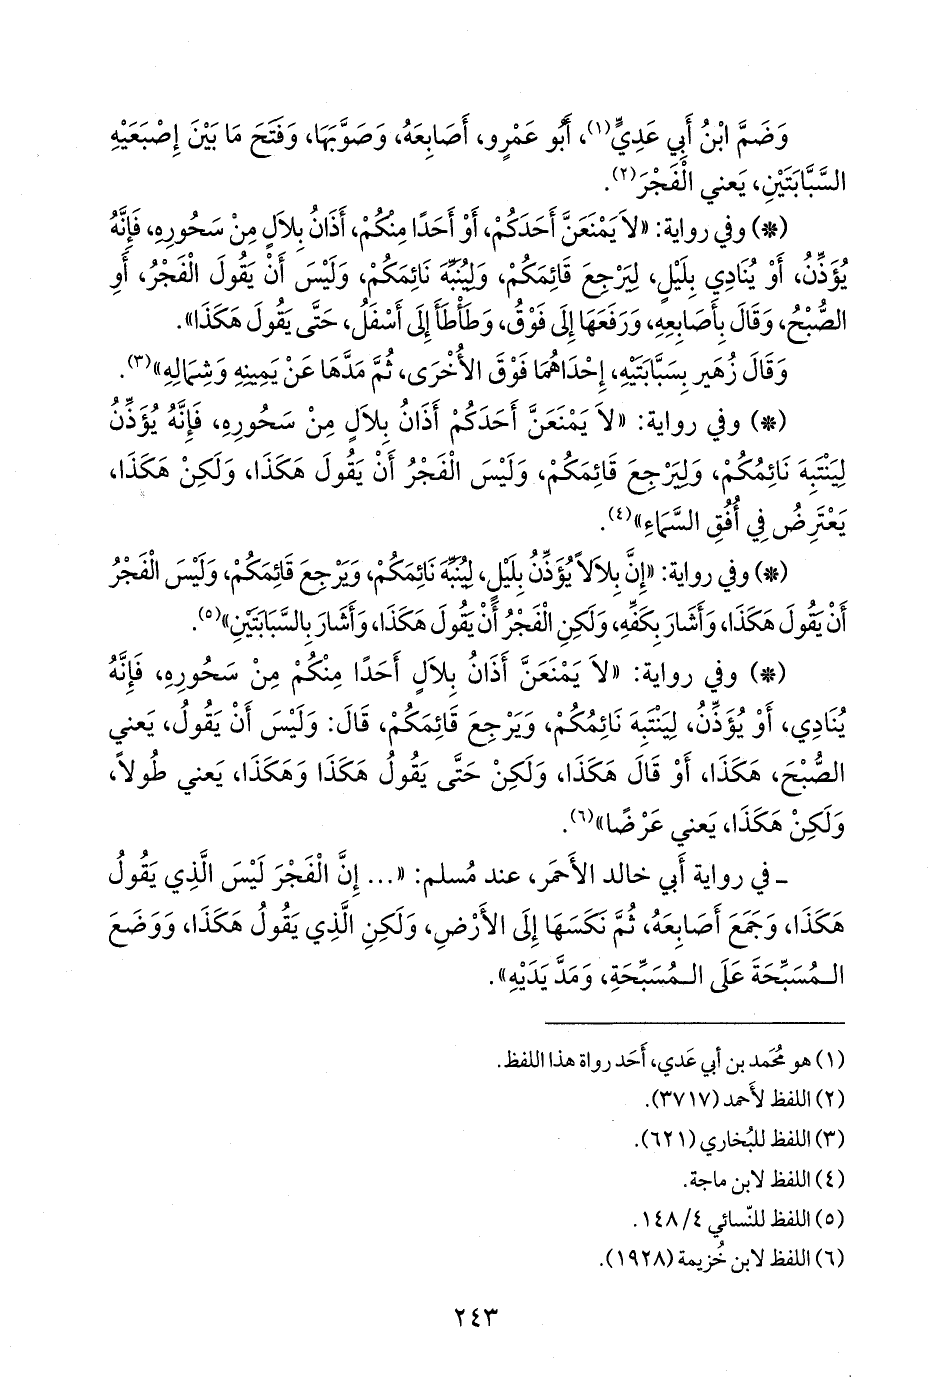 وَضَمَّ ابْنُ أَبِي عَدِيٍّ(١)، أَبُو عَمْرٍو، أَصَابِعَهُ، وَصَوَّبَهَا، وَفَتَحَ مَا بَيْنَ إِصْبَعَيْهِ
السَّبَّابَتَيْنِ، يَعني الْفَجْرَ(٢).
(*) وفي رواية: «لاَ يَمْنَعَنَّ أَحَدَكُمْ، أَوْ أَحَدًا مِنْكُمْ، أَذَانُ بِلاَلٍ مِنْ سَحُورِهِ، فَإِنَّهُ
يُؤَذِّنُ، أَوْ يُنَادِي بِلَيْلٍ، لِيَرْجِعَ قَائِمَكُمْ، وَلِيُنَبِّهَ نَائِمَكُمْ، وَلَيْسَ أَنْ يَقُولَ الْفَجْرُ، أَوِ
الصُّبْحُ، وَقَالَ بِأَصَابِعِهِ، وَرَفَعَهَا إِلَى فَوْقُ، وَطَأْطَأَ إِلَى أَسْفَلُ، حَتَّى يَقُولَ هَكَذَا».
وَقَالَ زُهَير بِسَبَّابَتَيْهِ، إِحْدَاهُمَا فَوْقَ الأُخْرَى، ثُمَّ مَدَّهَا عَنْ يَمِينِهِ وَشِمَالِهِ»(٣).
(*) وفي رواية: «لاَ يَمْنَعَنَّ أَحَدَكُمْ أَذَانُ بِلاَلٍ مِنْ سَحُورِهِ، فَإِنَّهُ يُؤَذِّنُ
لِيَنْتَبِهَ نَائِمُكُمْ، وَلِيَرْجِعَ قَائِمَكُمْ، وَلَيْسَ الْفَجْرُ أَنْ يَقُولَ هَكَذَا، وَلَكِنْ هَكَذَا،
يَعْتَرِضُ فِي أُفُقِ السَّمَاءِ»(٤).
(*) وفي رواية: «إِنَّ بِلاَلاً يُؤَذِّنُ بِلَيْلٍ، لِيُنَبِّهَ نَائِمَكُمْ، وَيَرْجِعَ قَائِمَكُمْ، وَلَيْسَ الْفَجْرُ
أَنْ يَقُولَ هَكَذَا، وَأَشَارَ بِكَفِّهِ، وَلَكِنِ الْفَجْرُ أَنْ يَقُولَ هَكَذَا، وَأَشَارَ بِالسَّبَابَتَيْنِ»(٥).
(*) وفي رواية: «لاَ يَمْنَعَنَّ أَذَانُ بِلاَلٍ أَحَدًا مِنْكُمْ مِنْ سَحُورِهِ، فَإِنَّهُ
يُنَادِي، أَوْ يُؤَذِّنُ، لِيَنْتَبِهَ نَائِمُكُمْ، وَيَرْجِعَ قَائِمَكُمْ، قَالَ: وَلَيْسَ أَنْ يَقُولُ، يَعني
الصُّبْحَ، هَكَذَا، أَوْ قَالَ هَكَذَا، وَلَكِنْ حَتَّى يَقُولُ هَكَذَا وَهَكَذَا، يَعني طُولاً،
وَلَكِنْ هَكَذَا، يَعني عَرْضًا»(٦).
ـ في رواية أَبي خالد الأَحمَر، عند مُسلم: «... إِنَّ الْفَجْرَ لَيْسَ الَّذِي يَقُولُ
هَكَذَا، وَجَمَعَ أَصَابِعَهُ، ثُمَّ نَكَسَهَا إِلَى الأَرْضِ، وَلَكِنِ الَّذِي يَقُولُ هَكَذَا، وَوَضَعَ
الـمُسَبِّحَةَ عَلَى الـمُسَبِّحَةِ، وَمَدَّ يَدَيْهِ».
(١) هو مُحَمد بن أَبي عَدي، أَحَد رواة هذا اللفظ.
(٢) اللفظ لأَحمد (٣٧١٧).
(٣) اللفظ للبُخاري (٦٢١).
(٤) اللفظ لابن ماجة.
(٥) اللفظ للنَّسائي ٤/ ١٤٨.
(٦) اللفظ لابن خُزيمة (١٩٢٨).
٢٤٣